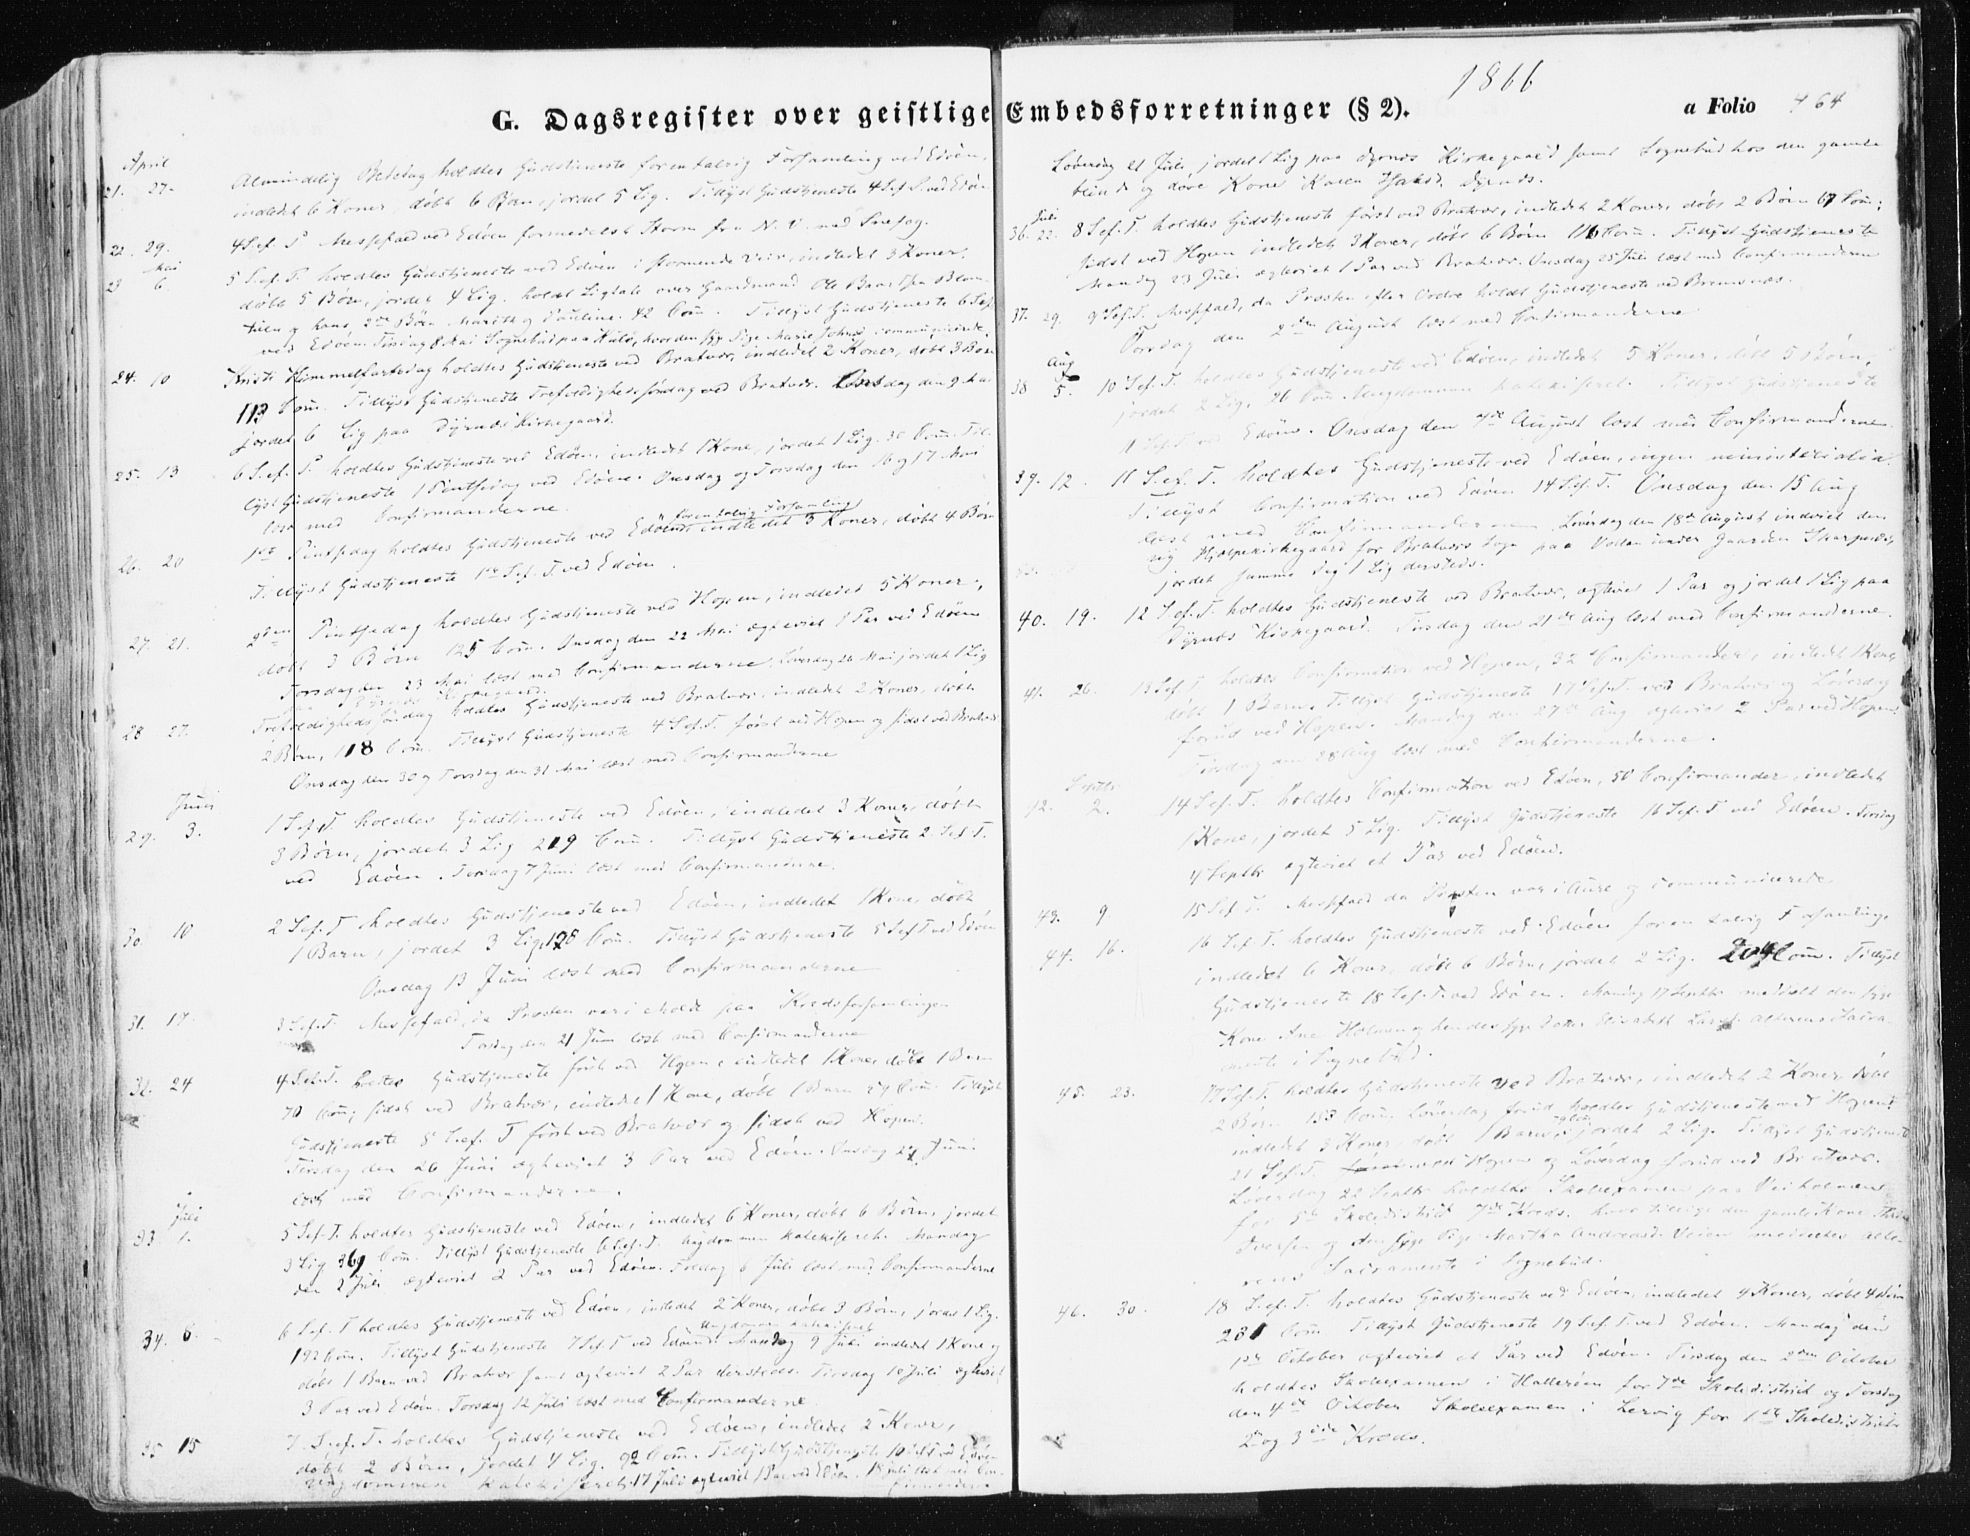 1866
G. Dagsregister over geistlige Embedsforretninger (§ 2).
a Folio 464
April
21. 27. Almindelig Bededag holdtes Gudstjeneste foren talrig Forsamling ved Edöen,
indledet 6 Koner, döbt 6 Börn, jordet 5 Lig. Tillyst Gudstjeneste 4 S.ef. P. ved Edöen
22. 29. 4 S.ef. P. Messefald ved Edöen formedelst Storm fra N. V. med
Mai
23 6. 5 S.ef. P. holdtes Gudstjeneste ved Edöen i stormende Veir, indledet 3 Koner,
döbt 5 Börn, jordet 4 Lig. holdt Ligtale over Gaardmand Ole
og hans Börn Marith og Pauline. 42 Com. Tillyst Gudstjeneste 6 S.ef.
ved Edöen. Tirsdag 8 Mai Sognebud paa hvor den syge Pige Marie Johns communicerede
24. 10 Kristi Himmelfartsdag holdtes Gudstjeneste ved Bratvær, indledet 2 Koner, döbt 3 Börn
113 Com. Tillyst Gudstjeneste Trefoldighedssöndag ved Bratvær. Onsdag den 9. Mai
jordet 6 Lig paa Dyrnæs Kirkegaard.
25. 13 6 S.ef. P. holdtes Gudstjeneste ved Edöen, indledet 1 Kone, jordet 1 Lig. 30 Com. Til-
lyst Gudstjeneste 1 Pintsedag ved Edöen. Onsdag og Torsdag den 16 og 17 Mai
læst med Confirmanderne.
for en talrig Forsamling
26. 20 1ste Pintsedag holdtes Gudstjeneste ved Edöen, indledet 3 Koner, döbt 4 Börn
Tillyst Gudstjeneste 1ste S.ef. T. ved Edöen.
27. 21. 2den Pintsedag holdtes Gudstjeneste ved Hopen, indledet 5 Koner,
döbt 3 Börn 125 Com. Onsdag den 22 Mai egteviet 1 Par ved Edöen
Torsdag den 23 Mai læst med Confirmanderne. Löverdag 26 Mai jordet 1 Lig
Dyrnæs Kirkegaard.
28 27. Trefoldighedssöndag holdtes Gudstjeneste ved Bratvær, indledet 2 Koner, döbt
2 Börn, 118 Com. Tillyst Gudstjeneste 4 S.ef. T. först ved Hopen og sidst ved Bratvær
Onsdag den 30 og Torsdag den 31 Mai læst med Confirmanderne
Juni
29. 3. 1 S.ef. T. holdtes Gudstjeneste ved Edöen, indledet 3 Koner, döbt
3 Börn, jordet 3 Lig 219 Com. Tillyst Gudstjeneste 2 S.ef. T.
ved Edöen. Torsdag 7 Juni læst med Confirmanderne.
30. 10 2 S.ef. T. holdtes Gudstjeneste ved Edöen, indledet 1 Kone, döbt
1 Barn, jordet 3 Lig, Com. Tillyst Gudstjeneste 5 S.ef. T. ved Edöen
Onsdag 13 Juni læst med Confirmanderne
31. 17. 3 S.ef. T. Messefald, da Præsten var i Molde paa Kredsforsamlingen
Torsdag den 21 Juni læst med Confirmanderne
32. 24 4 S.ef. T. holdtes Gudstjeneste först ved Hopen, indledet 1 Kone, döbt 1 Barn
70 Com; sidst ved Bratvær, indledet 1 Kone, döbt 1 Barn 24 Com. Tillyst
Gudstjeneste 8 S.ef. T. först ved Bratvær og sidst ved Hopen.
Tirsdag den 26 Juni egteviet 3 Par ved Edöen. Onsdag 27 Juni
læst med Confirmanderne.
Juli
33 1. 5 S.ef. T. holdtes Gudstjeneste ved Edöen, indledet 6 Koner, döbt 6 Börn, jordet
3 Lig 361 Com. Tillyst Gudstjeneste 6 S.ef. T. Ungdommen katekiseret. Mandag
den 2 Juli egteviet 2 Par ved Edöen. Fredag 6 Juli læst med Confirmanderne
34. 8. 6 S.ef. T. holdtes Gudstjeneste ved Edöen, indledet 2 Koner, döbt 3 Börn, jordet 1 Lig.
Ungdommen katekiseret
192 Com. Tillyst Gudstjeneste 7 S.ef. T. ved Edöen. Mandag 9 Juli indledet 1 Kone og
döbt 1 Barn ved Bratvær samt egteviet 2 Par dersteds. Tirsdag 10 Juli egteviet
3 Par ved Edöen. Torsdag 12 Juli læst med Confirmanderne.
35 15 7. S.ef. T. holdtes Gudstjeneste ved Edöen, indledet 2 Koner,
döbt 2 Börn, jordet 4 Lig. 92 Com. Tillyst Gudstjeneste 10 S.ef. T. ved Edöen
Ungdommen katekiseret. 17 Juli egteviet 1 Par ved Edöen. 18 Juli læst med Con-
firmanderne
Löverdag 21 Juli, jordet 1 Lig paa Dyrnæs Kirkegaard samt Sognebud hos den gamle
blinde og döve Kone Karen Dyrnæs.
Juli
36. 22. 8 S.ef. T. holdtes Gudstjeneste först ved Bratvær, indledet 2 Koner, döbt 2 Börn 67 Com;
sidst ved Hopen indledet 3 Koner, döbt 6 Börn 116 Com. Tillyst Gudstjeneste
Mandag 23 Juli egteviet 1 Par ved Bratvær. Onsdag 25 Juli læst med Confirmanderne
37. 29. 9 S.ef. T. Messefald, da Præsten efter Ordre holdt Gudstjeneste ved Bremsnæs.
Torsdag den 2den August læst med Confirmanderne
Aug
38 5. 10 S.ef. T. holdtes Gudstjeneste ved Edöen, indledet 5 Koner, döbt 5 Börn,
jordet 2 Lig, 26 Com. Ungdommen katekiseret. Tillyst Gudstjeneste
11 S.ef. T. ved Edöen. Onsdag den August læst med Confirmanderne.
39. 12. 11 S.ef. T. holdtes Gudstjeneste ved Edöen, ingen ministerialia.
Tillyst Confirmation ved Edöen 14 S.ef. T. Onsdag den 15 Aug
læst med Confirmanderne. Löverdag den 18de August indviet den
ny Hjælpekirkegaard for Bratværs Sogn paa Vollan under Gaarden Skarpnæs,
jordet samme Dag 1 Lig dersteds.
40. 19. 12 S.ef. T. holdtes Gudstjeneste ved Bratvær, egteviet 1 Par og jordet 1 Lig paa
Dyrnæs Kirkegaard. Tirsdag den 21de Aug læst med Confirmanderne.
41. 26. 13 S.ef. T. holdtes Confirmation ved Hopen, 32 Confirmander, indledet 1 Kone,
döbt 1 Barn. Tillyst Gudstjeneste 17 S.ef. T. ved Bratvær og Löverdag
forud ved Hopen. Mandag den 27de Aug egteviet 2 Par ved Hopen.
Tirsdag den 28 Aug læst med Confirmanderne.
Septbr
42. 2. 14 S.ef. T. holdtes Confirmation ved Edöen, 50 Confirmander, indledet
1 Kone, jordet 5 Lig. Tillyst Gudstjeneste 16 S.ef. T. ved Edöen. Tirsdag
4 Septbr egteviet et Par ved Edöen.
43. 9. 15 S.ef. T. Messefald da Præsten var i Aure og communicerede
44. 16. 16 S.ef. T. holdtes Gudstjeneste ved Edöen for en talrig Forsamling.
indledet 6 Koner, döbt 6 Börn, jordet 2 Lig. 204 Com. Tillyst
Gudstjeneste 18 S.ef. T. ved Edöen. Mandag 17 Septbr meddelt den syge
Kone Ane Holmen og hendes syge Datter Elisabeth Larsd. Alterens Sacra-
mente i Sognebud.
45. 23. 17 S.ef. T. holdtes Gudstjeneste ved Bratvær, indledet 2 Koner, döbt
2 Börn 153 Com. Löverdag forud holdtes Gudstjeneste ved Hopen,
indledet 3 Koner, döbt 1 Barn, jordet 2 Lig. Tillyst Gudstjeneste
21 S.ef. T. ved Hopen og Löverdag forud ved Bratvær.
Löverdag 22 Septbr holdtes Skoleexamen paa Veiholmen
for 5te Skoledistrikt 7de Kreds. hvor tillige den gamle Kone
Iversen og den syge Pige Martha Andreasd. Veien meddeltes Alte-
rens Sacramente i Sognebud.
46. 30. 18 S.ef. T. holdtes Gudstjeneste ved Edöen, indledet 4 Koner, döbt 4 Börn
281 Com Tillyst Gudstjeneste 19 S.ef. T. ved Edöen. Mandag den
1ste October egteviet et Par ved Edöen. Tirsdag den 2den October
holdtes Skoleexamen i Halleröen for 7de Skoledistrict og Torsdag
den 4de October Skoleexamen i Lervig for 1ste Skoledistrikt
2 og 3die Kreds.